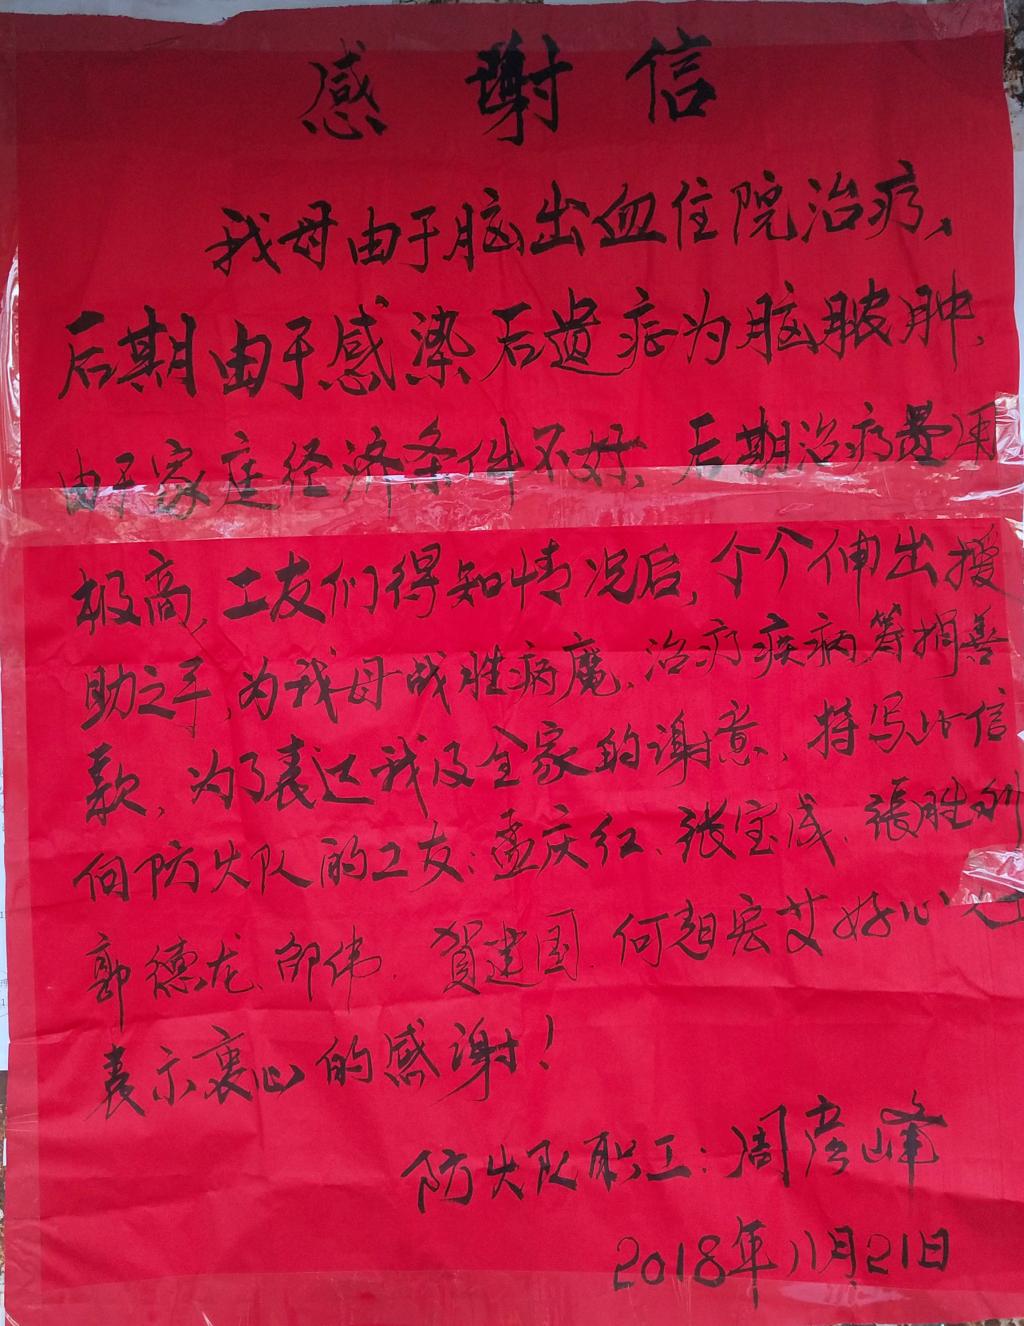 感谢信
我母由于脑出血住院治疗、
后期由于感染后遗症为脑脓肿、
由于家庭经济条件不好、后期治疗费用
极高、工友们得知情况后,个个伸出援
助之手,为我母战胜病魔、治疗疾病,筹捐善
款,为了表达我及全家的谢意、特写此信
向防火队的工友:孟庆红、张宝成、張胜利
郭德龙、邵伟、贺建国、何超宏艾好心人
表示衷心的感谢!
防火队职工:周彦峰
2018年11月21日